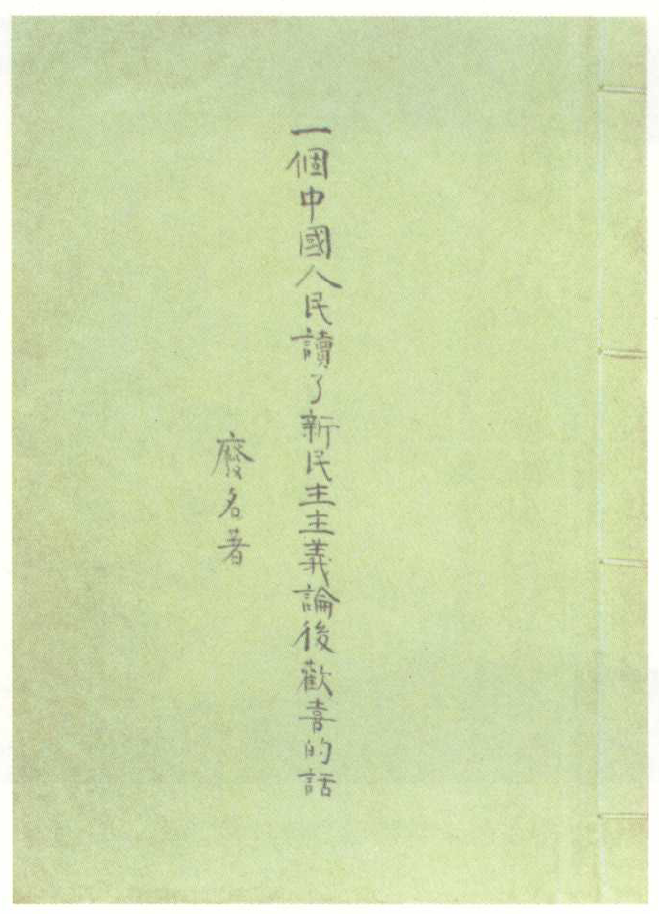 一個中國人民讀了新民主主義論後歡喜的話
廢名著